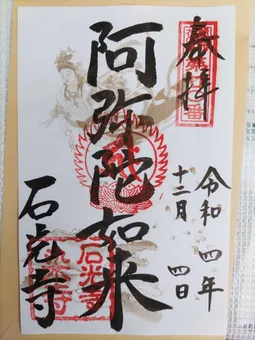 奉拝
令和四年
十二月四日
阿弥陀如来
石光寺